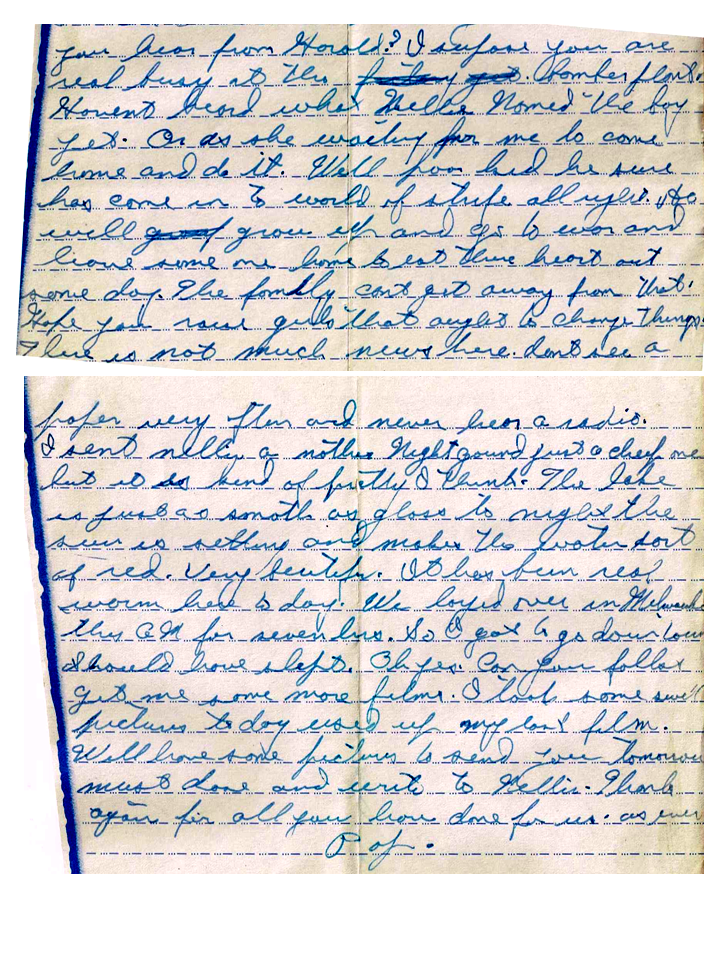 you hear from Harold? I supose you are
real busy at the bomber plant.
Havent heard what Nellie Nomed the boy
yet. Or is she waiting for me to come
home and do it. Well poor kid he sure
has come in to world of strife all right. He
will grow up and go to war and
leave some one home to eat there heart out
some day. The family cant get away from that.
Hope you raise girls that aught to change things.
There is not much news here. dont see a
paper very often and never hear a radio.
I sent nellie a nother Night gound just a cheap one
but it is kind of pretty I think. The lake
is just as smoth as glass to night the
sun is setting and makes the water sort
of red. Very beutifu. It has been real
warm here to day. We layed over in Milwauke
this AM for seven hrs. So I got to go down town
should have slept. Oh yes. Can you folks
get me some more films. I took some swell
pictures to day used up my last film.
Will have some pictures to send you tomorrow
must close and write to Nellie. Thank
again for all you have done for us. as ever
Pop.